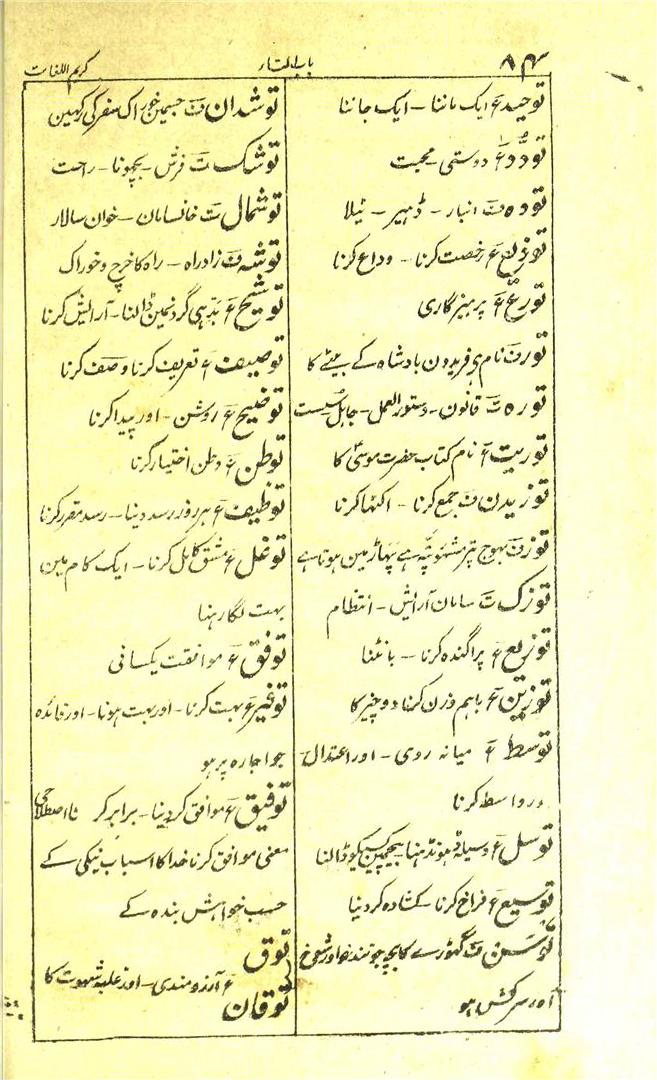 ۸۴
باب التاء
کریم اللغات
توحید ؏ ایک ماننا - ایک جاننا
تودّد ؏ دوستی - محبت
تودہ ف انبار - ڈھیر - ٹیلا
تودیع ؏ رخصت کرنا - وداع کرنا
تورّع ؏ پرہیزگاری
تور ف نام ہی فریدون بادشاہ کے بیٹے کا
تورہ ت قانون - دستور العمل - جاہل
توریت ؏ نام کتاب حضرت موسیٰ کا
توزیدن ف جمع کرنا - اکٹھا کرنا
توز ف بھوج پتر مشہور ہے پہاڑ مین ہوتا ہے
توزک ت سامان آرایش - انتظام
توزیع ؏ پراگندہ کرنا - بانٹنا
توزین ؏ باہم وزن کرنا دو چیز کا
توسط ؏ میانہ روی - اور اعتدال
ور واسط کرنا
توسل ؏ وسیلہ ڈہونڈہنا - بیچمین کسیکو ڈالنا
توسیع ؏ فراخ کرنا - کشادہ کر دینا
توسن ف گھوڑے کا بچہ جو تند خو اور شوخ
اور سرکش ہو
توشدان ف جسمین خوراک سفر کی رکہین
توشک ت فرش - بچھونا - راحت
توشمال ت خانسامان - خوان سالار
توشہ ف زاد راہ - راہ کا خرچ و خوراک
توشیح ؏ بدّہی گردنمین ڈالنا - آرایش کرنا
توصیف ؏ تعریف کرنا وصف کرنا
توضیح ؏ روشن - اور پیدا کرنا
توطن ؏ وطن اختیار کرنا
توظیف ؏ ہر روز رسد دینا - رسد مقرر کرنا
توغل ؏ مشق کامل کرنا - ایک کام مین
بہت لگا رہنا
توفق ؏ موافقت یکسانی
توفیر ؏ بہت کرنا - اور بہت ہونا - اور فائدہ
جو اجارہ پر ہو
توفیق ؏ موافق کر دینا - برابر کر نا اصطلاحی
معنی موافق کرنا خدا کا اسباب نیکی کے
حسب خواہش بندہ کے
توق
توقان
؏ آرزومندی - اور غلبہ شہوت کا